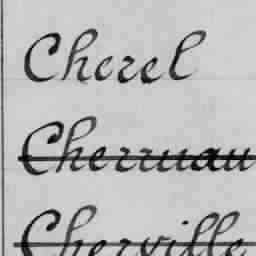 Cherel
Cherruau
Cherville